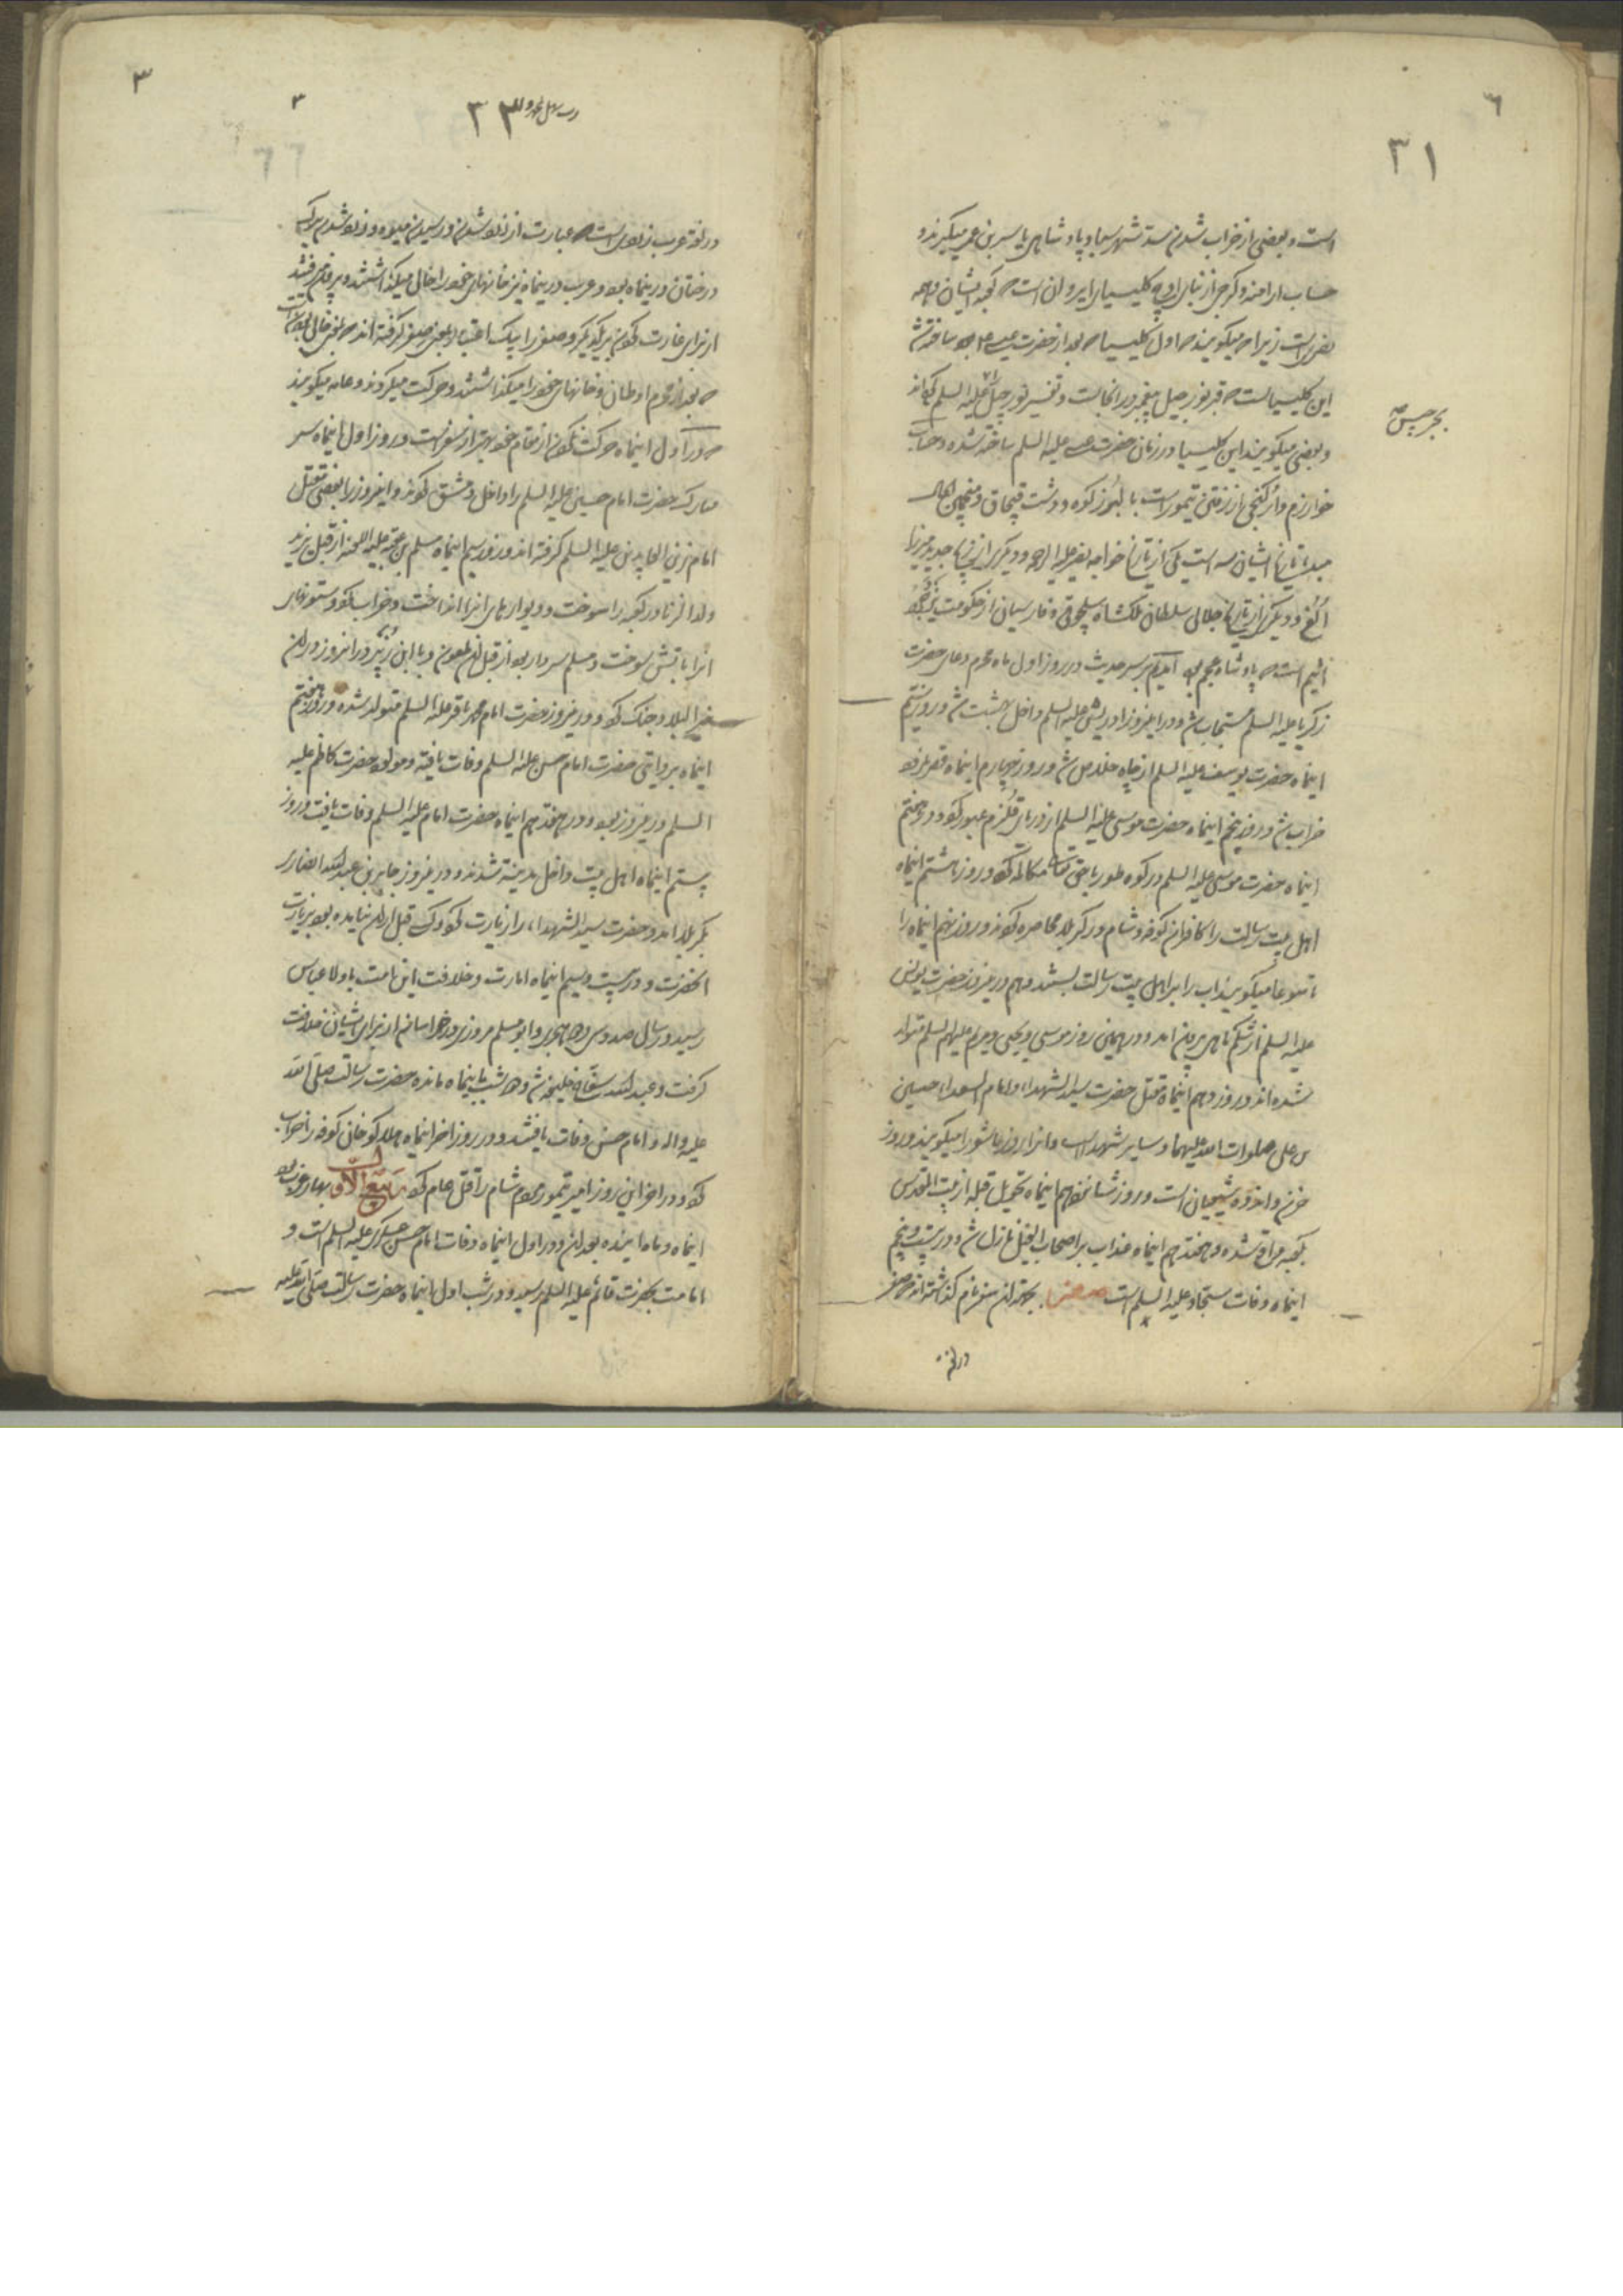 ٦
٣١
است و بعضی از خراب شدن سد شهر سبا و پادشاهی یاسر بن عمر میگیرند و
حساب ارامنه و کرجی از بنای اوچ کلیسیای ایروان است که کعبه ایشان و همه
نصری است زیرا که میگویند که اول کلیسیا که بعد از حضرت عیسی ساخته شد
این کلیسیاست که قبر نورجیل پیغمبر در انجاست و تفسیر نورجیل علیه السلم کرده‌اند
بجرجیس
و بعضی میگویند این کلیسیا در زمان حضرت عیسی علیه السلم ساخته شده و حساب
خوارزم و ارکنجی از رفتن تیمور است با لبرز کوه و دشت قبچاق و منجمین اهل
مبدء تاریخ ایشان سه است یکی از تاریخ خواجه نصیر علیه الرحمه و دیگری از زیج جدید میرزا
الغ و دیگری از تاریخ جلالی سلطان ملکشاه سلجوقی و فارسیان از حکومت
است که پادشاه عجم بود حدیث در روز اول ماه محرم دعای حضرت
زکریا علیه السلم مستجاب شد و در این روز ادریس علیه السلم داخل بهشت شد و روز سیم
اینماه حضرت یوسف علیه السلم از چاه خلاص شد و روز چهارم اینماه
خراب شد و روز پنجم اینماه حضرت موسی علیه السلم از دریای قلزم عبور کرد و در هفتم
اینماه حضرت موسی علیه السلم در کوه طور با حق تعالی مکالمه کرد و روز هشتم اینماه
اهل بیت رسالت را کافران کوفه و شام در کربلا محاصره کردند و روز نهم اینماه را
تاسوعا میگویند اب را بر اهل بیت رسالت بستند و هم در این روز حضرت یونس
علیه السلم از شکم ماهی بیرون امد و در همین روز موسی و یحیی و مریم علیهم السلم متولد
شده اند و روز دهم اینماه قتل حضرت سید الشهداء و امام السعداء حسین
بن علی صلوات الله علیهما و سایر شهداست و انرا روز عاشورا میگویند و روز
حزن و اندوه شیعیان است و روز شانزدهم اینماه تحویل قبله از بیت المقدس
بکعبه مقرر شده و هفدهم اینماه عذاب بر اصحاب الفیل نازل شد و در بیست و پنجم
اینماه وفات سجاد علیه السلم است صفر بجهة ان صفر نام گذاشته‌اند که صفر
در لغة
٣
٣
٣٣
در لغة عرب زردی است که عبارت از زرد شدن و رسیدن میوه و زرد شدن برک
درختان در اینماه بود و عرب در اینماه نیز خانهای خود را خالی میگذاشتند و بیرون میرفتند
از برای غارت کردن یکدیگر و صفر را بیک اعتبار بمعنی صفر گرفته اند که بمعنی خالی بودن است
که بعد از محرم اوطان و خانهای خود را میگذاشتند و حرکت میکردند و عامه میگویند
که در اول اینماه حرکت کردن از مقام خود بهتر از سفر است و روز اول اینماه سر
مبارک حضرت امام حسین علیه السلم را داخل دمشق کردند و این روز را بعضی بقتل
امام زین العابدین علیه السلم گرفته اند و روز سیم اینماه مسلم بن عقبه علیه اللعنه از قبل یزید
ولد الزنا در کعبه را سوخت و دیوارهای انرا انداخت و خراب کرد و ستونهای
انرا باتش سوخت و مسلم سردار بود از قبل ان ملعون و با ابن زبیر در این روز در ان
خیر البلاد جنک کرد و در این روز حضرت امام محمد باقر علیه السلم متولد شده و روز هفتم
اینماه بروایتی حضرت امام حسن علیه السلم وفات یافته و مولود حضرت کاظم علیه
السلم در این روز بود و در هفدهم اینماه حضرت امام علیه السلم وفات یافت و روز
بیستم اینماه اهل بیت داخل مدینه شدند و در این روز جابر بن عبد الله انصاری
بکربلا امد و حضرت سید الشهداء را زیارت کرد و کسی قبل از ان نیامده بود بزیارت
انحضرت و در بیست و سیم اینماه امارت و خلافت این امت باولاد عباس
رسید در سال صد و سی و دو هجری و ابو مسلم مروزی در خراسان از برای ایشان خلافت
گرفت و عبد الله سفاح خلیفه شد و دو شب باینماه مانده حضرت رسالت صلی الله
علیه واله و امام حسن وفات یافتند و در روز اخر اینماه هلاکو خان کوفه را خراب
کرد و در اخر این روز امیر تیمور مردم شام را قتل عام کرد ربیع الاول بهار عرب بود
اینماه و ماه اینده بعد ان و در اول اینماه وفات امام حسن عسکری علیه السلم است و
امامت بحضرت قائم علیه السلم رسید و در شب اول اینماه حضرت رسالت صلی الله علیه